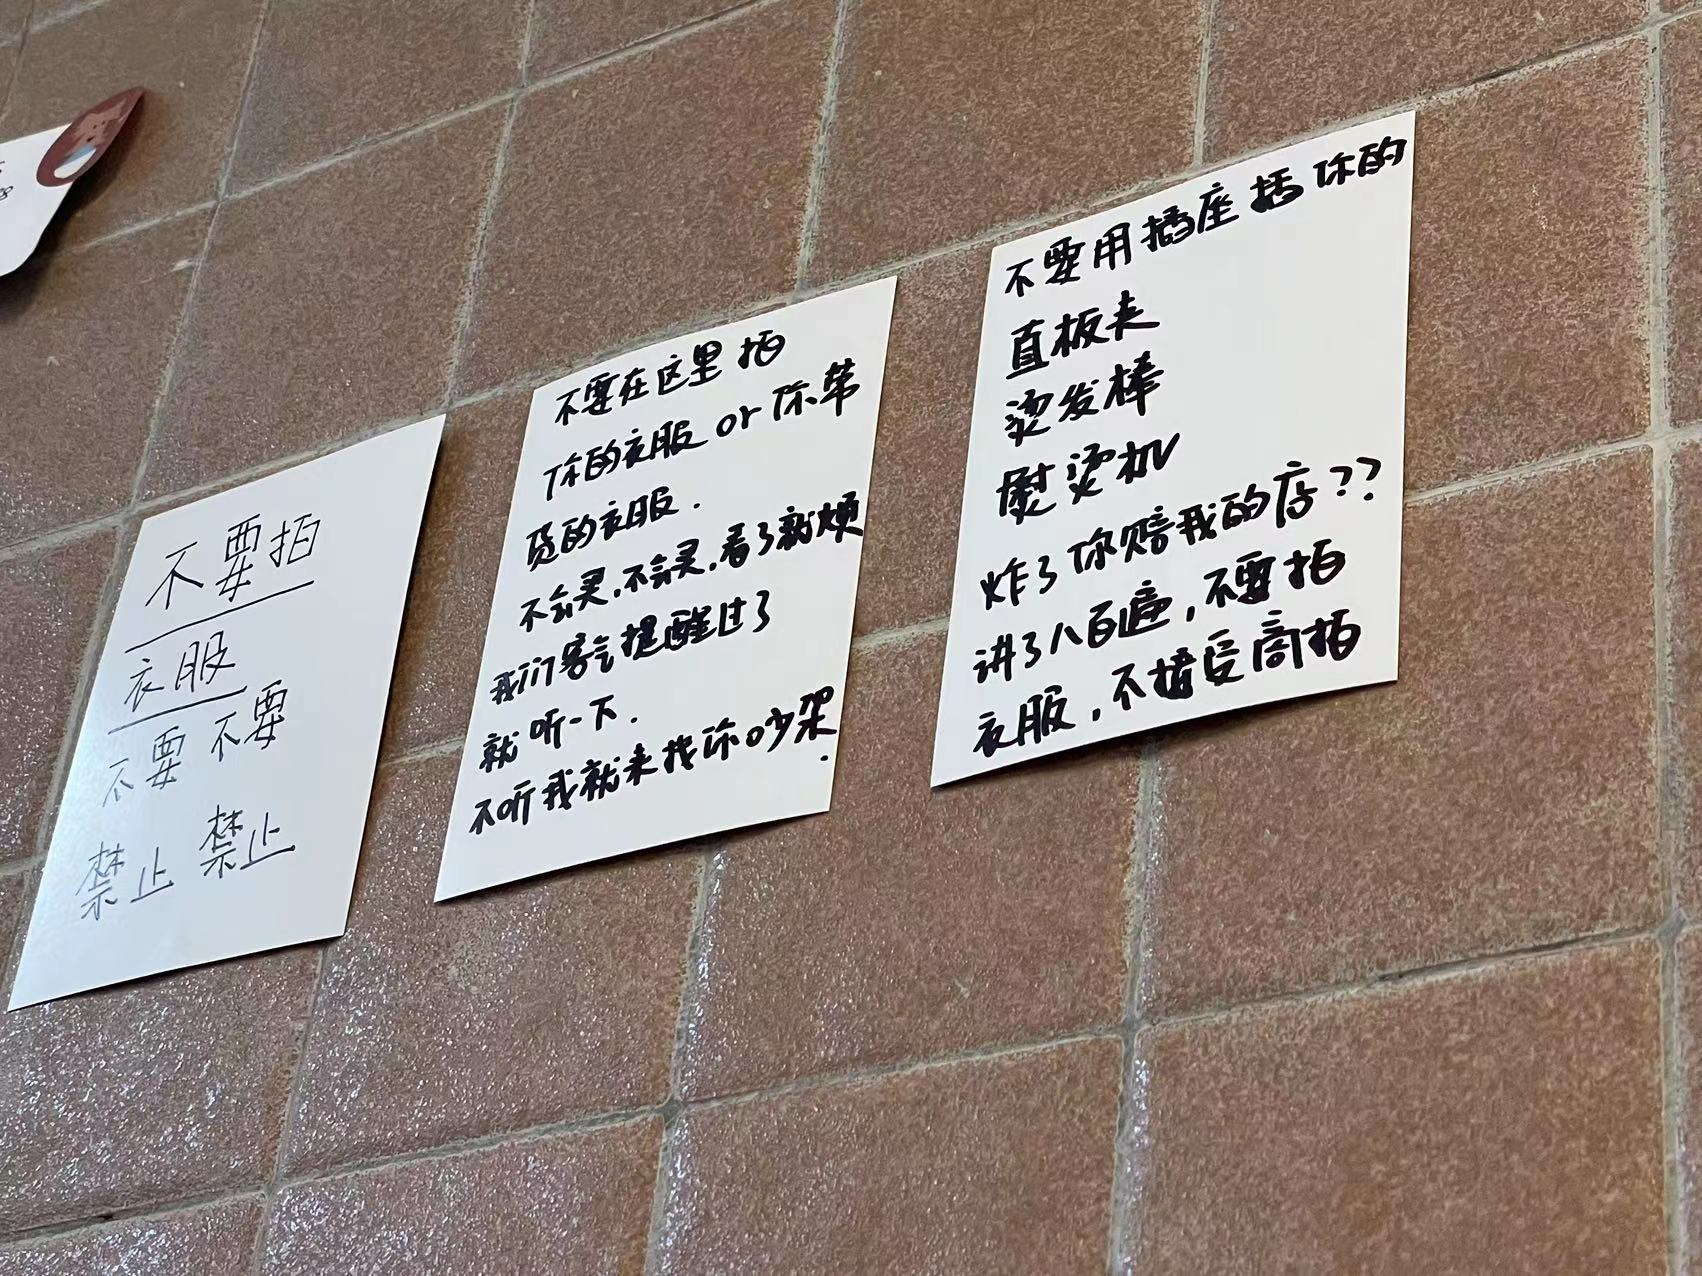 不要拍
衣服
不要 不要
禁止 禁止
不要在这里拍
你的衣服 or 你带
货的衣服.
不会灵,不会灵,看了就烦
我们客气提醒过了
就听一下.
不听我就来找你吵架.
不要用插座插你的
直板夹
烫发棒
熨烫机
炸了你赔我的店??
讲了八百遍,不要拍
衣服,不接受商拍